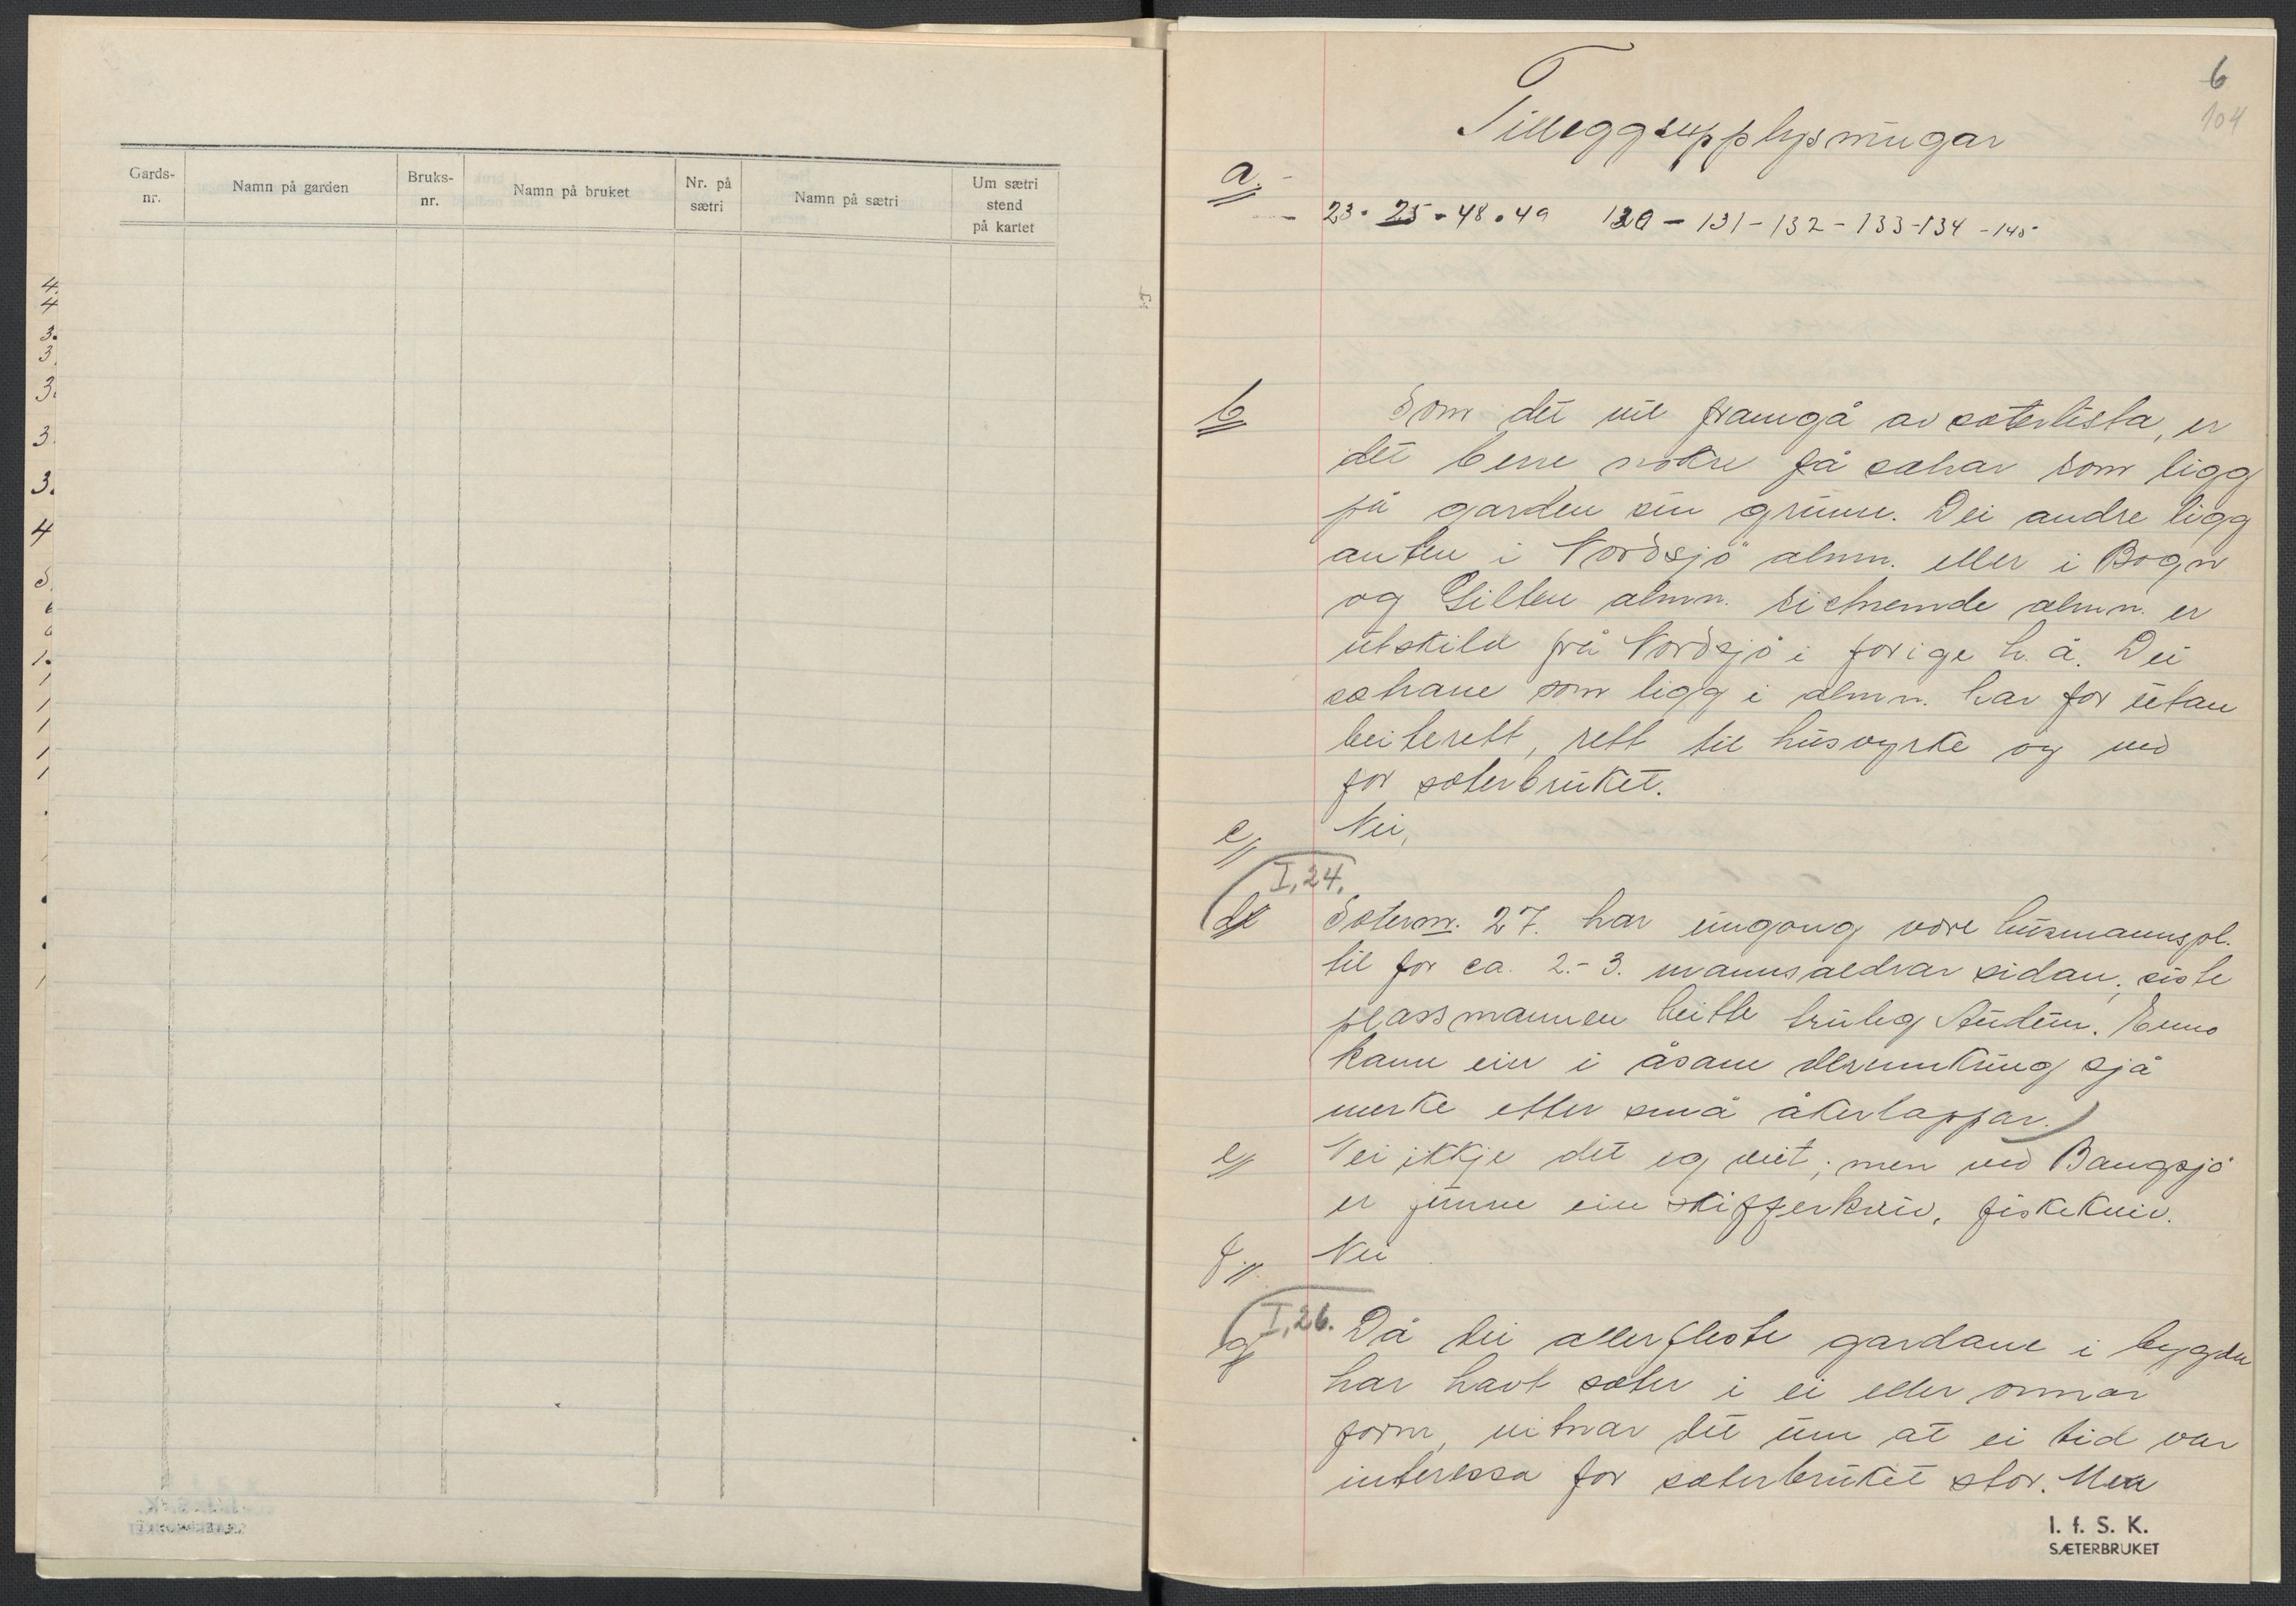 Gards-
nr.
Namn på garden
Bruks-
nr.
Namn på bruket
Nr. på
sætri
Namn på sætri
Um sætri
stend
på kartet
6
104
Tilleggsupplysningar
a.
23 · 25 - 48 · 49 130 - 131 - 132 - 133 - 134 - 145
b
Som det vil framgå av sæterlista, er
det berre nokre få sætrar som ligg
på garden sin grunn. Dei andre ligg
anten i Nordsjö almn. eller i Bogn
og Gilten almn. Sistnemde almn. er
utskild frå Nordsjö i forige h. å. Dei
sætrane som ligg i almn. har for utan
beiterett, rett til husvyrke og ved
for sæterbruket.
c Nei,
I, 24.
d Sæternr. 27. har eingong vore husmannspl.
til for ca. 2.- 3. mannsaldrar sidan, siste
plassmannen heitte truleg Audun. Enno
kann ein i åsane derumkring sjå
merke etter små åkerlappar.
e Nei ikkje det eg veit; men ved Bangsjö
er funne ein skifferkniv, fiskekniv.
f. Nei
I, 26.
g Då dei allerfleste gardane i bygda
har havt sæter i ei eller onnor
form, vitnar det um at ei tid var
interessa for sæterbruket stor. Men
I. f. S. K.
SÆTERBRUKET